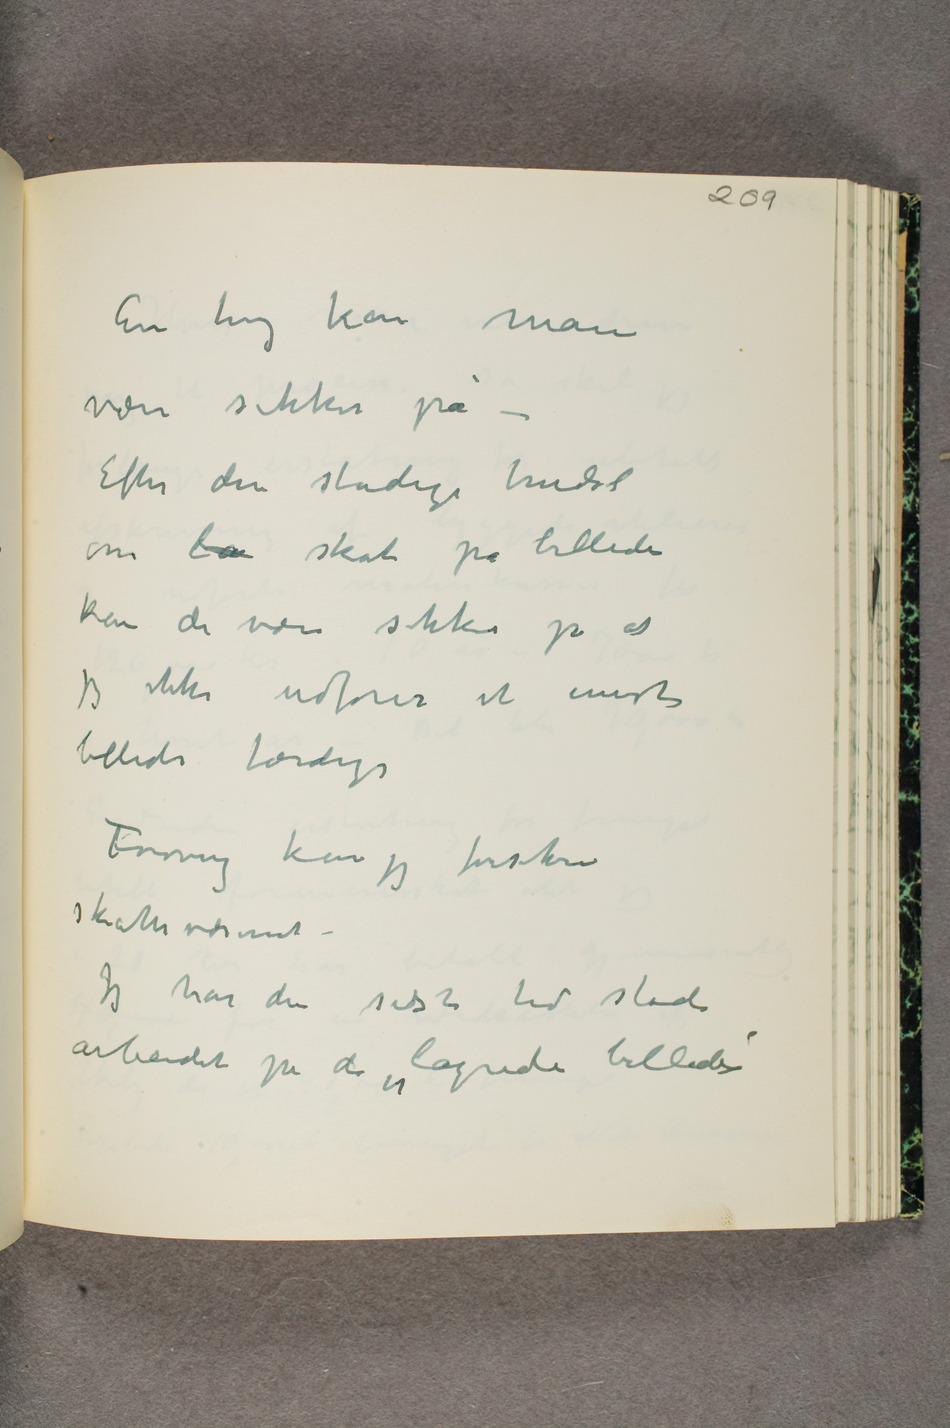 209
En ting kan man
være sikker på –
Efter den stadige trudsel
om skat på billeder
kan de være sikker på at
jeg ikke udfører et eneste
billede færdigt
Forøvrig kan jeg forsikre
skattevæsenet –
Jeg har den siste tid stadig
arbeidet på de „lagrede billeder“